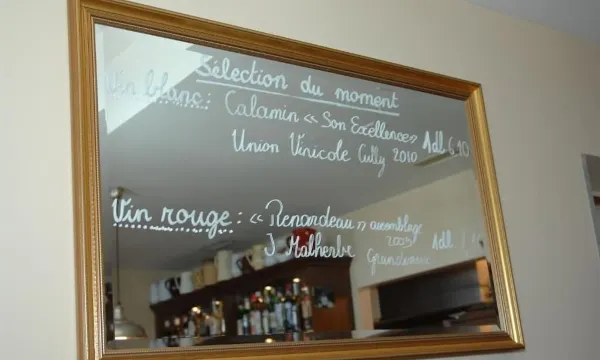 Sélection du moment
Vin blanc : Calamin « Son Excellence » 1dl 6.10
Union Vinicole Cully 2010
Vin rouge : « Renardeau » assemblage
J Malherbe 1dl